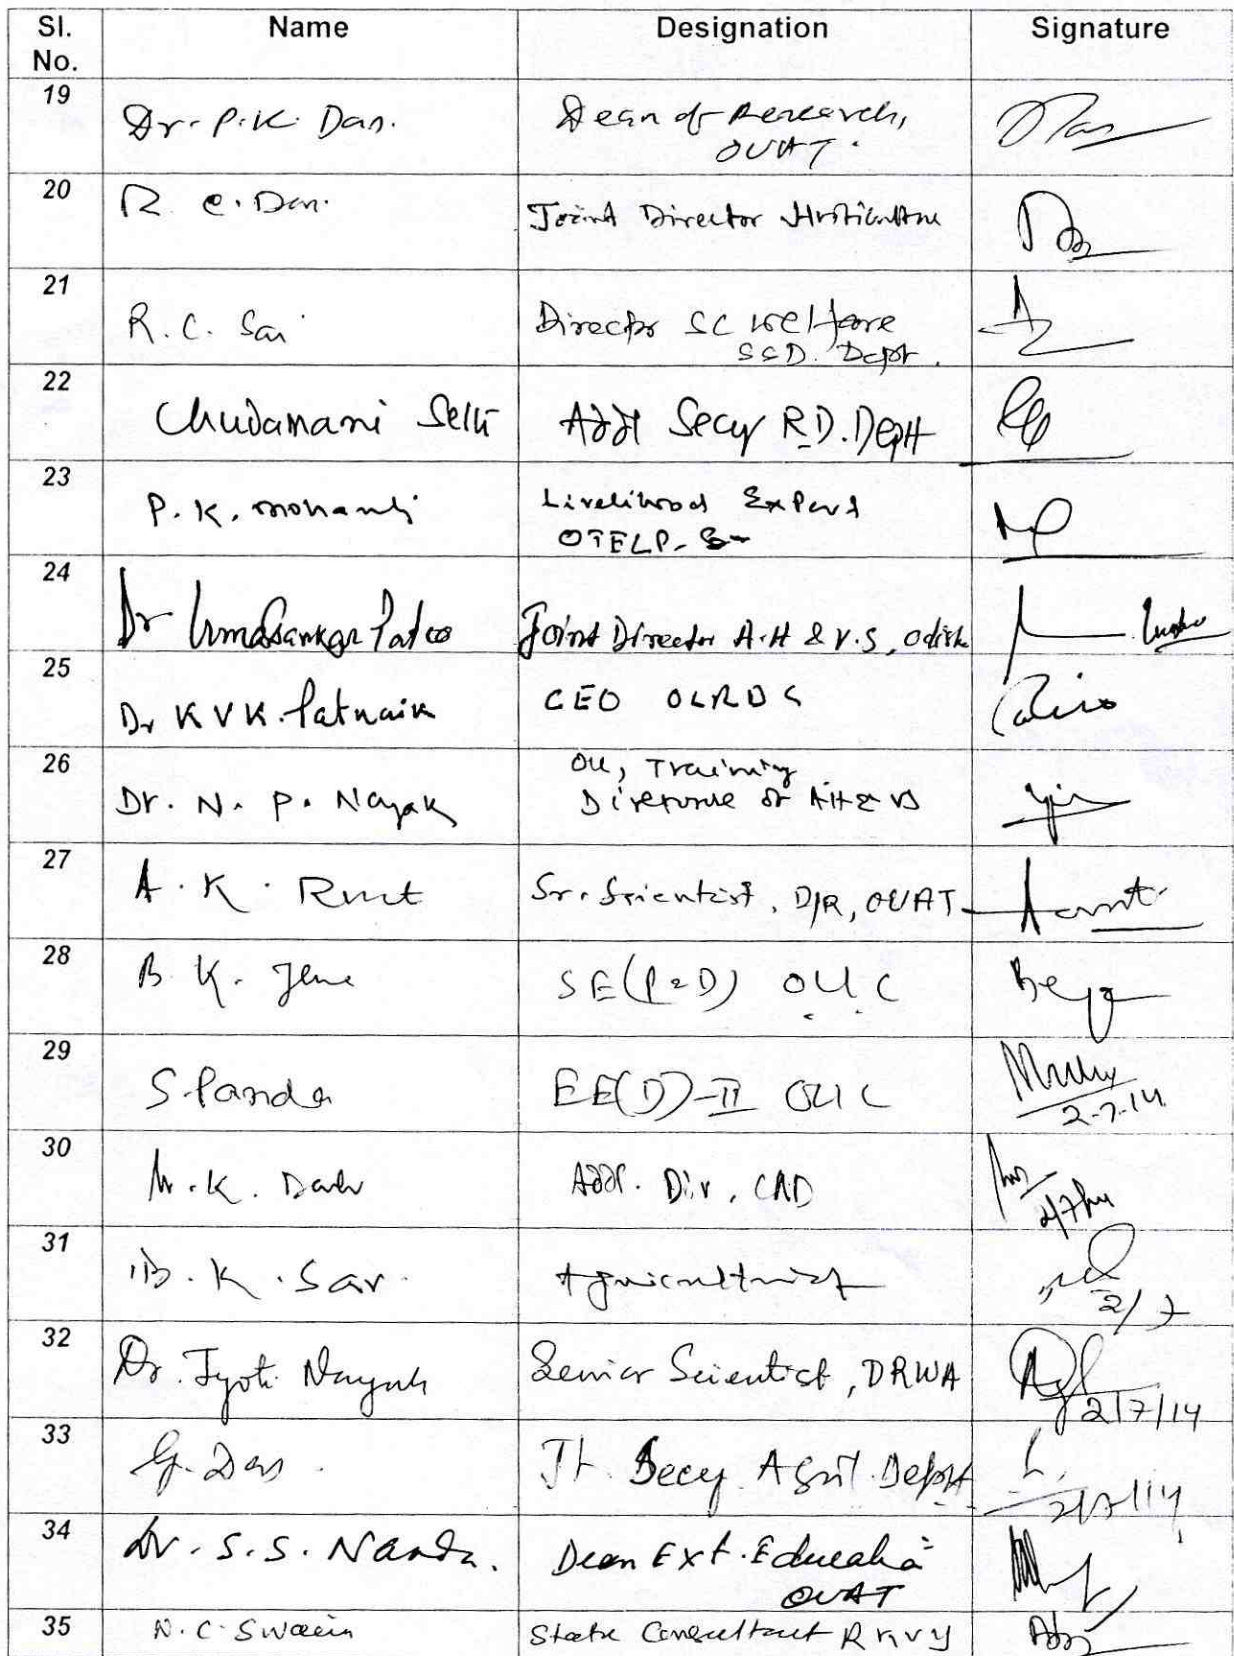 Sl. No. Name Designation Signature
19 Dr. P.K. Das. Dean of Research,
OUAT.
20 R. C. Das. Joint Director Horticulture
21 R. C. Sai Director SC Welfare
SSD. Dept.
22 Chudamani Seth Addl Secy R.D. Deptt
23 P. K. Mohanty Livelihood Expert
OTELP
24 Dr Umasankar Patro Joint Director A.H & V.S, Odisha
25 Dr KVK. Patnaik CEO OLRDS
26 Dr. N. P. Nayak Training
Directorate of AH & VS
27 A. K. Rout Sr. Scientist, DR, OUAT
28 B. K. Jena SE(P&D) OLIC
29 S. Panda EE(D)-II OLIC
2-7-14
30 K. Dash Addl. Dir, CAD
2/7/14
31 B. K. Sar. Agriculturist
2/7
32 Dr. Jyoti Nayak Senior Scientist, DRWA
2/7/14
33 G. Das. Jt. Secy Agril. Deptt
2/7/14
34 Dr. S. S. Nanda. Dean Ext. Education
OUAT
35 N. C. Swain State Consultant RKVY